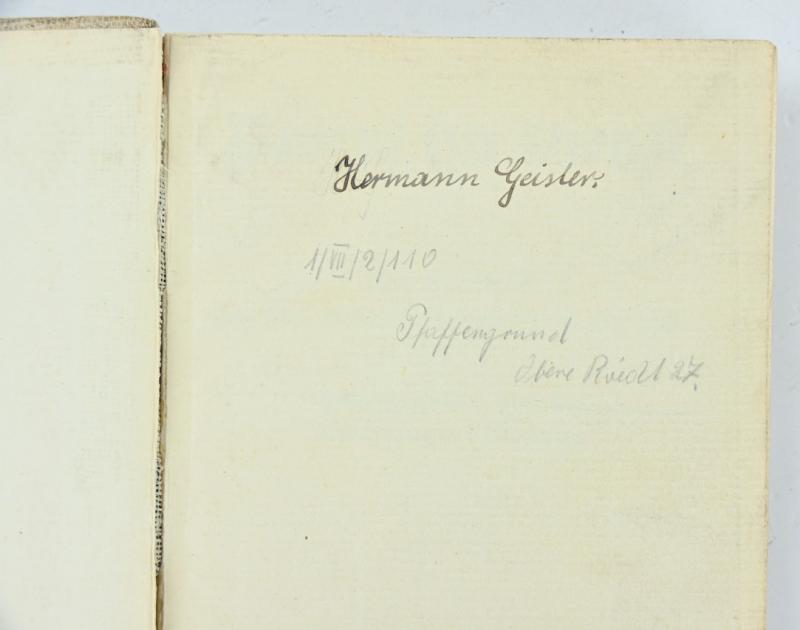 Hermann Geisler.
1/VII/2/110
Pfaffengrund
Obere Rödt 27.